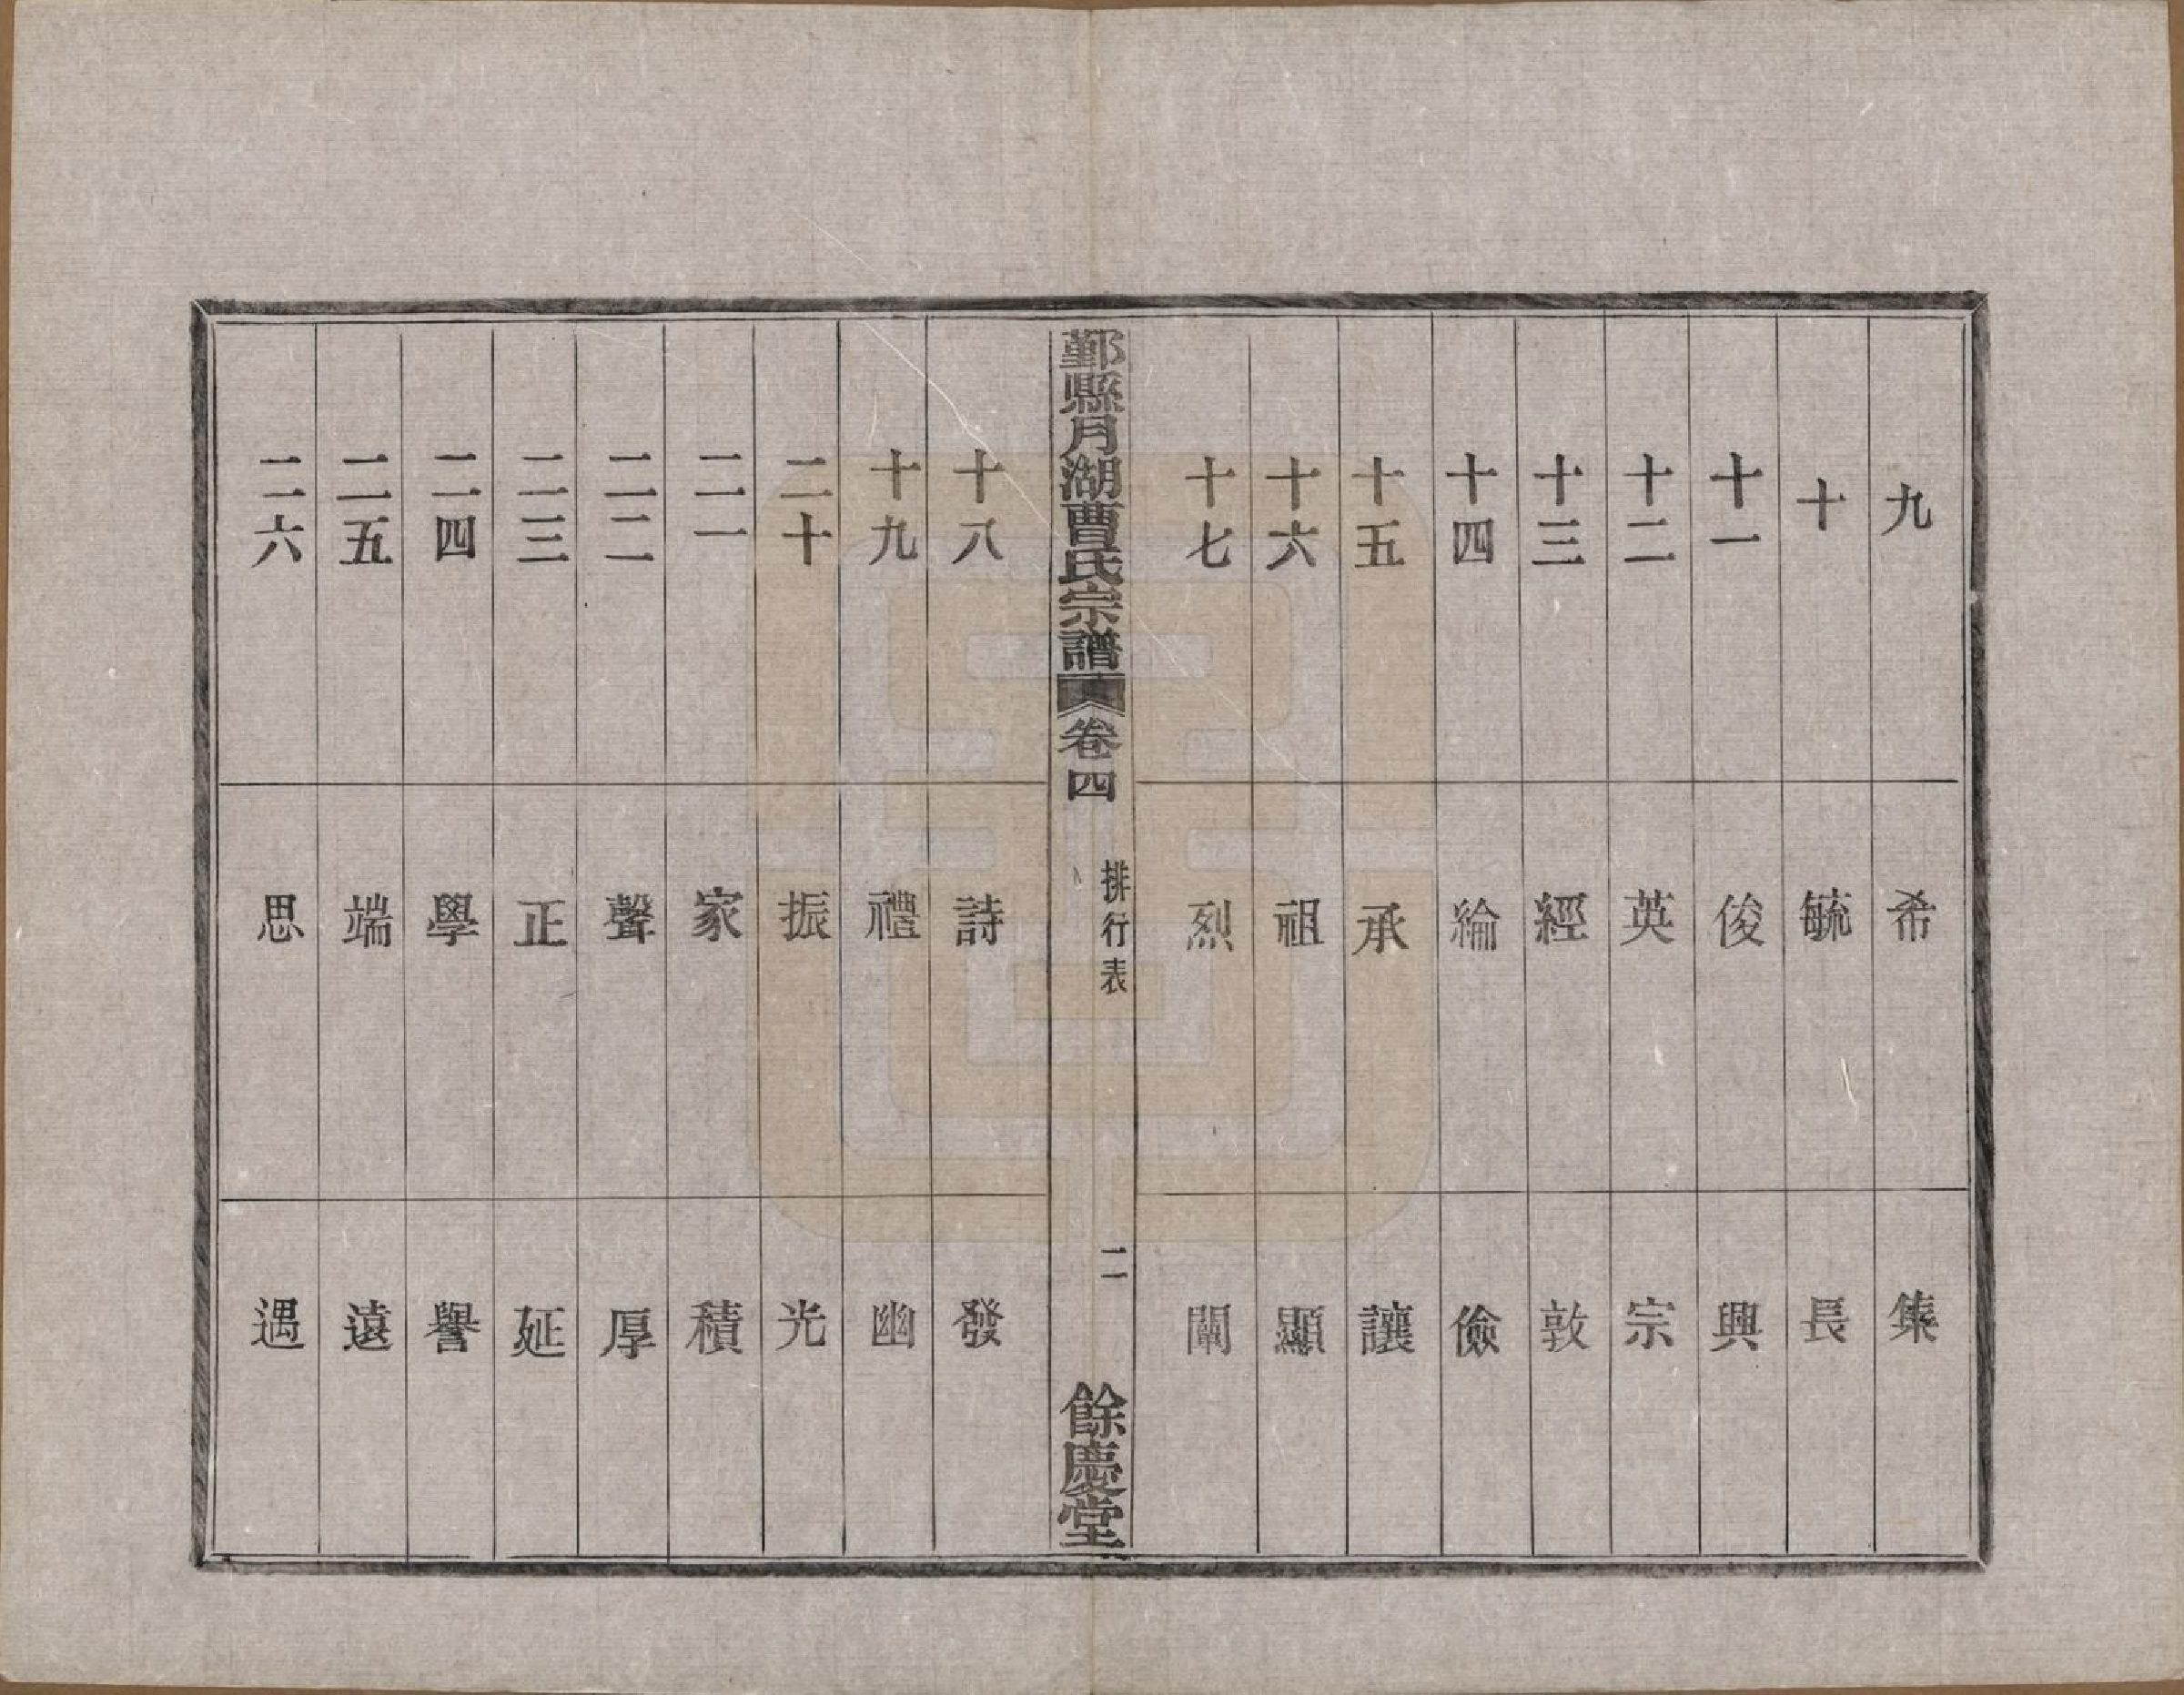 九 希 集
十 毓 長
十一 俊 興
十二 英 宗
十三 經 敦
十四 綸 儉
十五 承 讓
十六 祖 顯
十七 烈 闡
鄞縣月湖曹氏宗譜 卷四 排行表 二 餘慶堂
十八 詩 發
十九 禮 幽
二十 振 光
二一 家 積
二二 聲 厚
二三 正 延
二四 學 譽
二五 端 遠
二六 思 遇